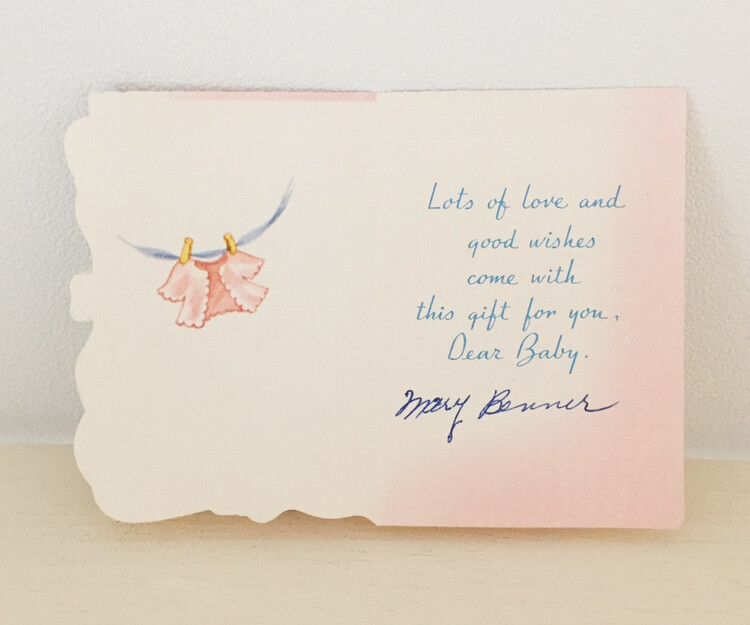 Lots of love and
good wishes
come with
this gift for you,
Dear Baby.
Mary Benner